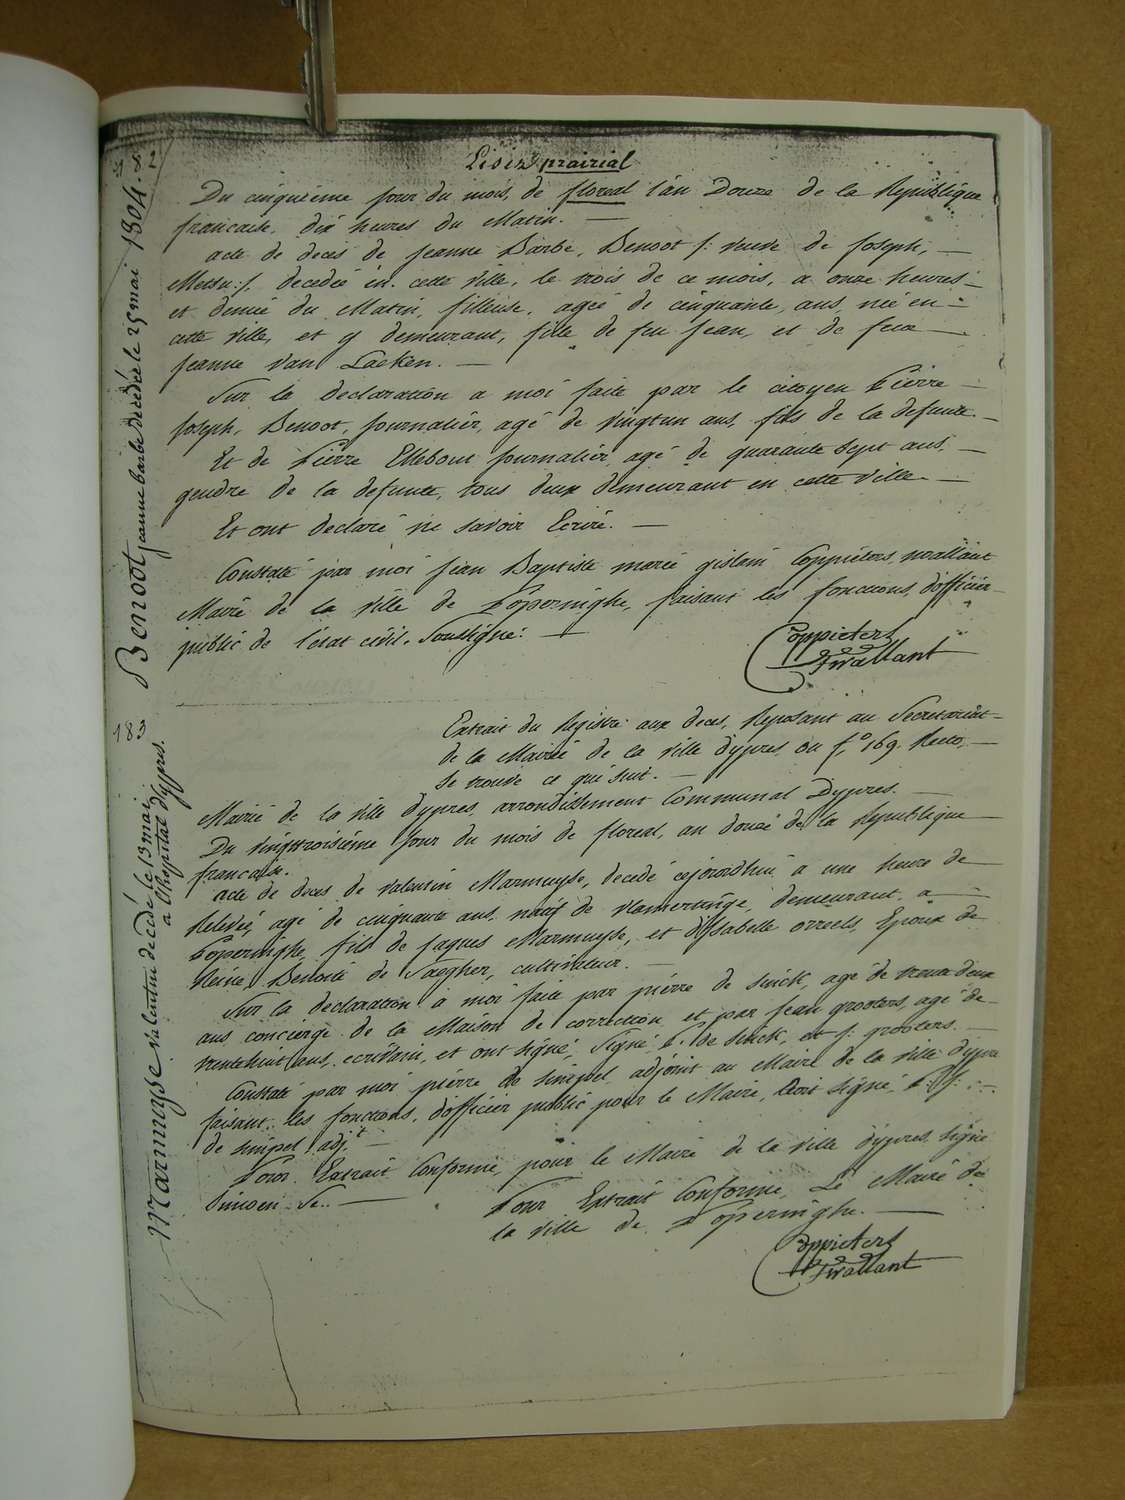 Lisez prairial
Du cinquieme jour du mois, de floreal l'an Douze de la Republique
francaise, dix heures du Matin. —
acte de deces de Jeanne Barbe, Benoot /: veuve de Joseph, —
Metsu :/ decedée en cette ville, le trois de ce mois, a onze heures
et demie du Matin, fileuse, agée de cinquante, ans, née en
cette ville, et y demeurant, fille de feu Jean, et de feue
Jeanne Van Lacken. —
Sur la declaration a moi faite par le citoyen Pierre
Joseph, Benoot, Journalier, agé de vingtun ans, fils de la defunte. —
Et de Pierre Ellebout Journalier, agé de quarante sept ans, —
gendre de la defunte, tous deux demeurant en cette ville. —
Et ont declaré ne savoir Ecrire. —
Constaté par moi Jean Baptiste marie gislain Coppieters, wallant
Maire de la ville de Poperinghe, faisant les fonctions, d'officier
public de l'état civil. Soussigné. —
Coppieters
Twallant
182
1804.
Benoot jeanne barbe decedée le 25 mai
183
Marmuyse valentin decedé le 13 mai,
a l'hopital d'ypres.
Extrait du Registre aux deces, Reposant au Secretariat
de la Mairie de la ville d'ypres ou f.º 169. Recto, —
se trouve ce qui suit. —
Mairie de la ville d'ypres, arrondissement Communal D'ypres. —
Du vingttroisiéme Jour du mois de floreal, an douze de la Republique
francaise.
acte de deces de valentin Marmuyse, decedé cejourdhui a une heure de
Relevée, agé de cinquante ans, natif de vlamertinge, demeurant, a
Poperinghe, fils de Jaques Marmuyse, et d'Isabelle orreels, Epoux de
Reine, Benoite de Saegher, cultivateur. —
Sur la declaration à moi faite par pierre de Smick, agé de trente deux
ans concierge de la Maison de correction, et par Jean grooters, agé de
trentehuit ans, ecrivain, et ont signé, Signé, P. de Smick, et J. grooters. —
Constaté par moi pierre de simpel adjoint au Maire de la ville d'ypres
faisant, les fonctions, d'officier public pour le Maire,
de simpel adj.t —
Pour Extrait Conforme, pour le Maire de la ville d'ypres, signé
Pour Extrait Conforme, Le Maire de
la ville de Poperinghe. —
Coppieters
Twallant